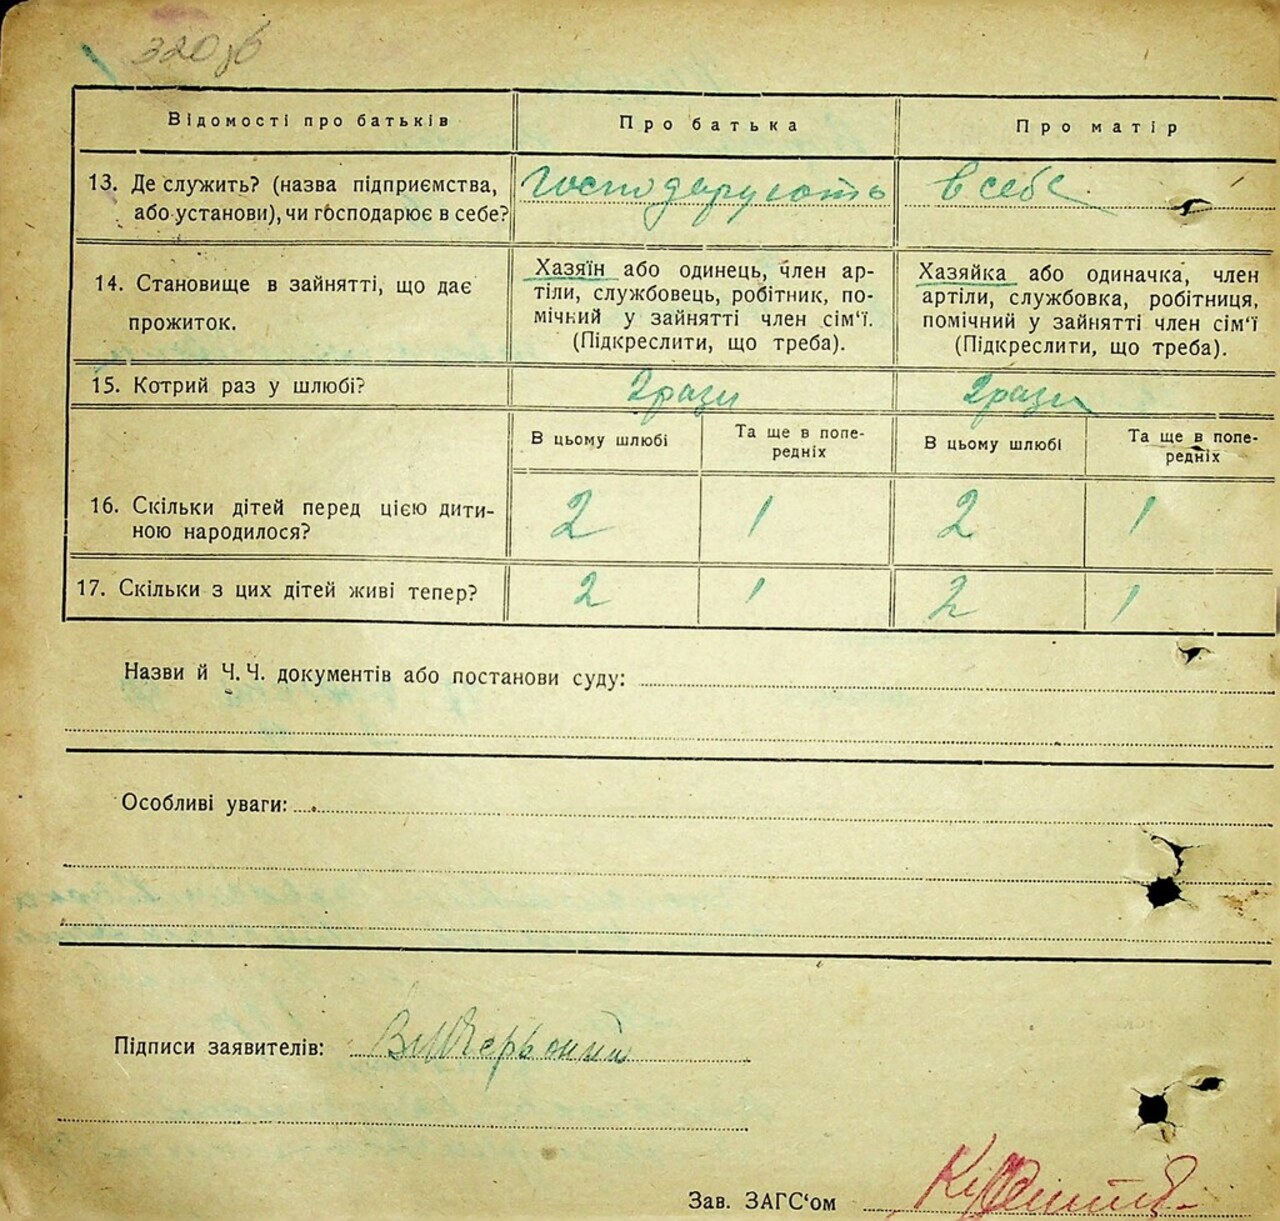 320 зб
Відомості про батьків Про батька Про матір
13. Де служить? (назва підприємства, або установи), чи господарює в себе? господарують в себе
14. Становище в зайнятті, що дає прожиток.
Хазяїн або одинець, член ар-
тіли, службовець, робітник, по-
мічний у зайнятті член сім‘ї.
(Підкреслити, що треба).
Хазяйка або одиначка, член
артіли, службовка, робітниця,
помічний у зайнятті член сім‘ї
(Підкреслити, що треба).
15. Котрий раз у шлюбі? 2 рази 2 рази
В цьому шлюбі Та ще в попе-редніх В цьому шлюбі Та ще в попе-редніх
16. Скільки дітей перед цією дити-
ною народилося? 2 1 2 1
17. Скільки з цих дітей живі тепер? 2 1 2 1
Назви й Ч. Ч. документів або постанови суду:
Особливі уваги:
Підписи заявителів:
Зав. ЗАГС‘ом